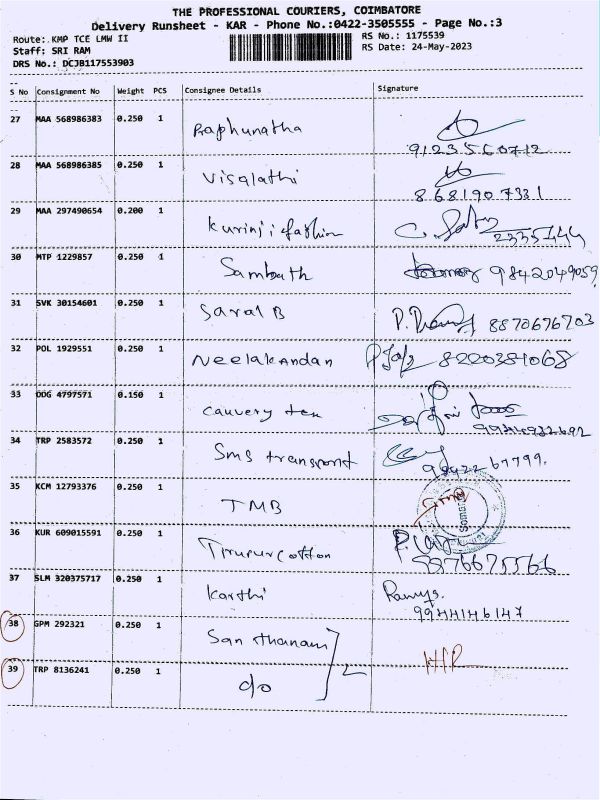 THE PROFESSIONAL COURIERS, COIMBATORE
Delivery Runsheet - KAR - Phone No.:0422-3505555 - Page No.:3
Route: KMP TCE LMW II RS No.: 1175539
Staff: SRI RAM RS Date: 24-May-2023
DRS No.: DCJB117553903
S No Consignment No Weight PCS Consignee Details Signature
27 MAA 568986383 0.250 1 Raphunatha
9123560712
28 MAA 568986385 0.250 1 Visalathi
8681907331
29 MAA 297490654 0.200 1 Kurinji fashion
30 MTP 1229857 0.250 1 Sambath 9842049059
31 SVK 30154601 0.250 1 Saral B 8870676703
32 POL 1929551 0.250 1 Neelakandan 8220381068
33 ODG 4797571 0.150 1 Cauvery tex
34 TRP 2583572 0.250 1 Sms transport
98422 67799.
35 KCM 12793376 0.250 1 TMB
36 KUR 609015591 0.250 1 Tirupur cotton
37 SLM 320375717 0.250 1 Karthi
9944146147
38 GPM 292321 0.250 1 Santhanam
39 TRP 8136241 0.250 1 do